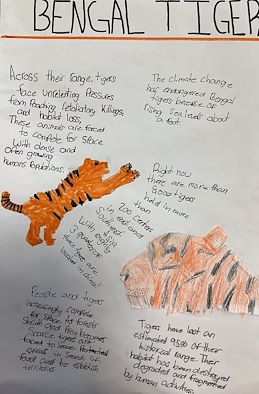 BENGAL TIGER
Across their range, tigers
face unrelenting pressures
from poaching, retaliatory killings,
and habitat loss,
These animals are forced
to compete for space
with dense and
often growing
human populations.
The climate change
has endangered Bengal
tigers because of
rising sea levels about
a foot.
Right now
there are more than
tigers
held in more
than
200 centers
in east and
Southeast
Asia
With roughly
3 quarters of
these tigers are
located in China
People and tigers
increasingly compete
for space. As forests
shrink and prey becomes
scarce tigers are
forced to leave protected
areas in search of
food and to establish
territories
Tigers have lost an
estimated 95% of their
historical range. Their
habitat has been destroyed
degraded and fragmented
by human activities.